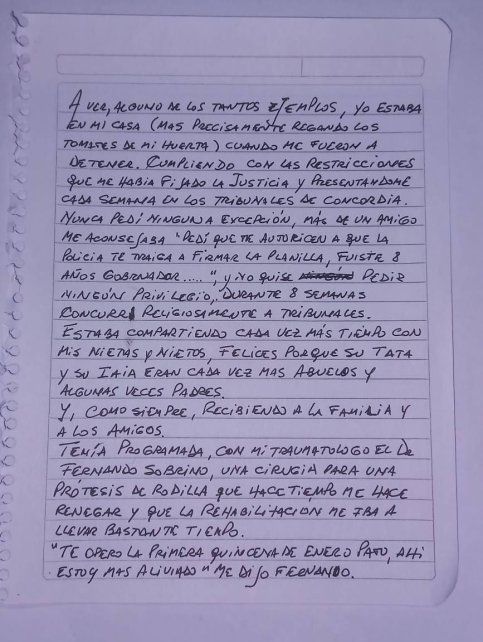 A VER, ALGUNO DE LOS TANTOS EJEMPLOS, YO ESTABA
EN MI CASA (MAS PRECISAMENTE REGANDO LOS
TOMATES DE MI HUERTA) CUANDO ME FUERON A
DETENER. CUMPLIENDO CON LAS RESTRICCIONES
QUE ME HABIA FIJADO LA JUSTICIA Y PRESENTANDOME
CADA SEMANA EN LOS TRIBUNALES DE CONCORDIA.
NUNCA PEDÍ NINGUNA EXCEPCIÓN, MÁS DE UN AMIGO
ME ACONSEJABA "PEDÍ QUE TE AUTORICEN A QUE LA
POLICIA TE TRAIGA A FIRMAR LA PLANILLA, FUISTE 8
AÑOS GOBERNADOR.....", Y YO QUISE PEDIR
NINGÚN PRIVILEGIO, "DURANTE 8 SEMANAS
CONCURRÍ RELIGIOSAMENTE A TRIBUNALES.
ESTABA COMPARTIENDO CADA VEZ MÁS TIEMPO CON
MIS NIETAS Y NIETOS, FELICES PORQUE SU TATA
Y SU IAIA ERAN CADA VEZ MAS ABUELOS Y
ALGUNAS VECES PADRES.
Y, COMO SIEMPRE, RECIBIENDO A LA FAMILIA Y
A LOS AMIGOS.
TENÍA PROGRAMADA, CON MI TRAUMATOLOGO EL DR
FERNANDO SOBRINO, UNA CIRUGIA PARA UNA
PRÓTESIS DE RODILLA QUE HACE TIEMPO ME HACE
RENEGAR Y QUE LA REHABILITACION ME IBA A
LLEVAR BASTANTE TIEMPO.
"TE OPERO LA PRIMERA QUINCENA DE ENERO PATO, AHI
ESTOY MAS ALIVIADO" ME DIJO FERNANDO.